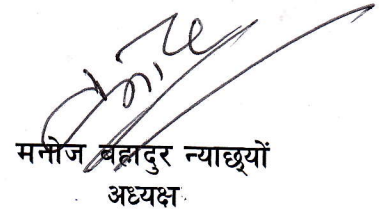 मनोज बहादुर न्याछ्यों
अध्यक्ष